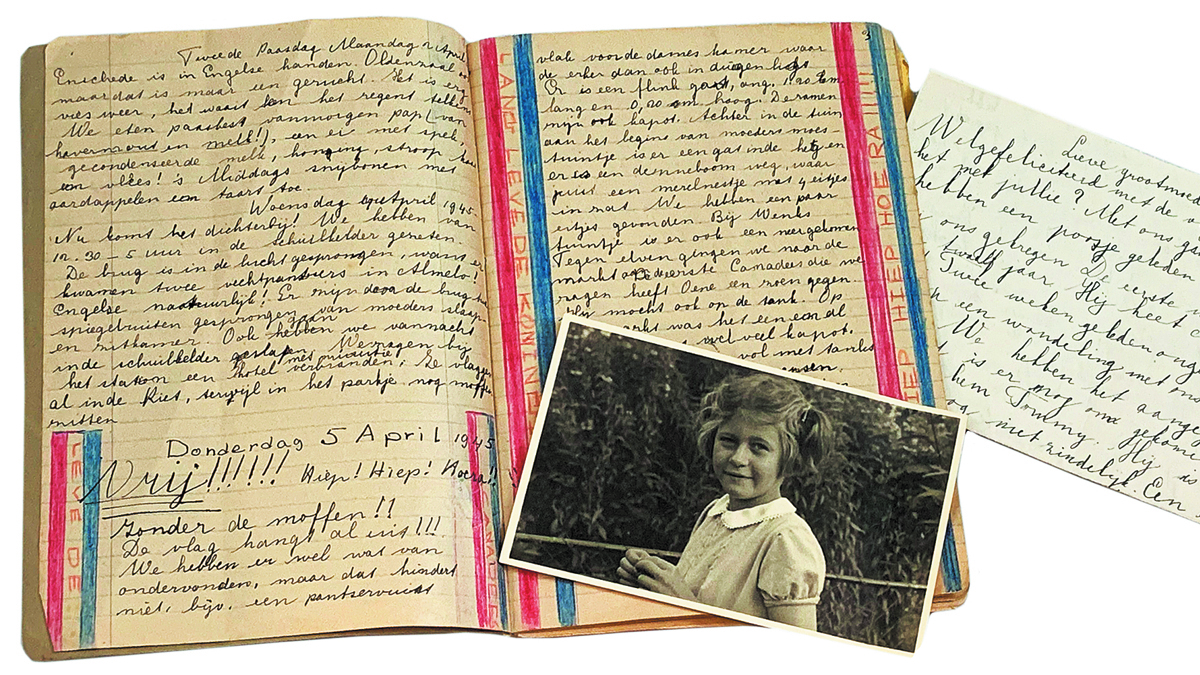 Tweede Paasdag Maandag 2 April
Enschede is in Engelse handen. Oldenzaal
maar dat is maar een gerucht. Het is erg
vies weer, het waait en het regent telkens
We eten paasbest vanmorgen pap (van
havermout en melk!), een ei met spek,
gecondenseerde melk, honing, stroop,
en vlees! 's Middags snijbonen met
aardappelen een taart toe.
Woensdag April 1945.
Nu komt het dichterbij! We hebben van
12.30 – 5 uur in de schuilkelder gezeten.
De brug is in de lucht gesprongen, want er
kwamen twee in Almelo,
Engelse natuurlijk! Er zijn door de brug
spiegelruiten gesprongen van moeders slaap-
en zitkamer. Ook hebben we vannacht
in de schuilkelder geslapen. We zagen bij
het station een hotel met munitie verbranden. De vlaggen
al in de Riet, terwijl in het parkje nog moffen
zitten
Donderdag 5 April 1945
Vrij!!!!!! Hiep! Hiep! Hoera!
Zonder de moffen!!
De vlag hangt al uit!!!
We hebben er wel wat van
ondervonden, maar dat hindert
niet, bijv. een pantservuist
LEVE DE
LAND LEVE DE KONING
3
vlak voor de dames kamer waar
de erker dan ook in duigen ligt
Er is een flink gat, lang, 1.20
lang en 0,20 m hoog. De ramen
zijn ook kapot. Achter in de tuin
aan het begin van moeders moes-
tuintje is er een gat in de heg en
er is een denneboom weg, waar
juist een merelnestje met 4 eitjes
in zat. We hebben een paar
eitjes gevonden. Bij Wenks
tuintje is er ook een neergekomen
Tegen elven gingen we naar de
markt de eerste Canadees die we
zagen heeft Oene een zoen gegen.
mocht ook op de tank. Op
markt was het een en al
wel veel kapot.
vol met tanks
HIEP HOERA!!!!!
Lieve grootmoe
Wel gefeliciteerd met de v
het met jullie? Met ons ga
hebben een poosje geleden
ons gekregen. De eerste
twaalf jaar. Hij heet
Twee weken geleden onge
een wandeling met om
We hebben het aange
is er nog om gekome
hem Tommy. Hij is
nog niet zindelijk. Een